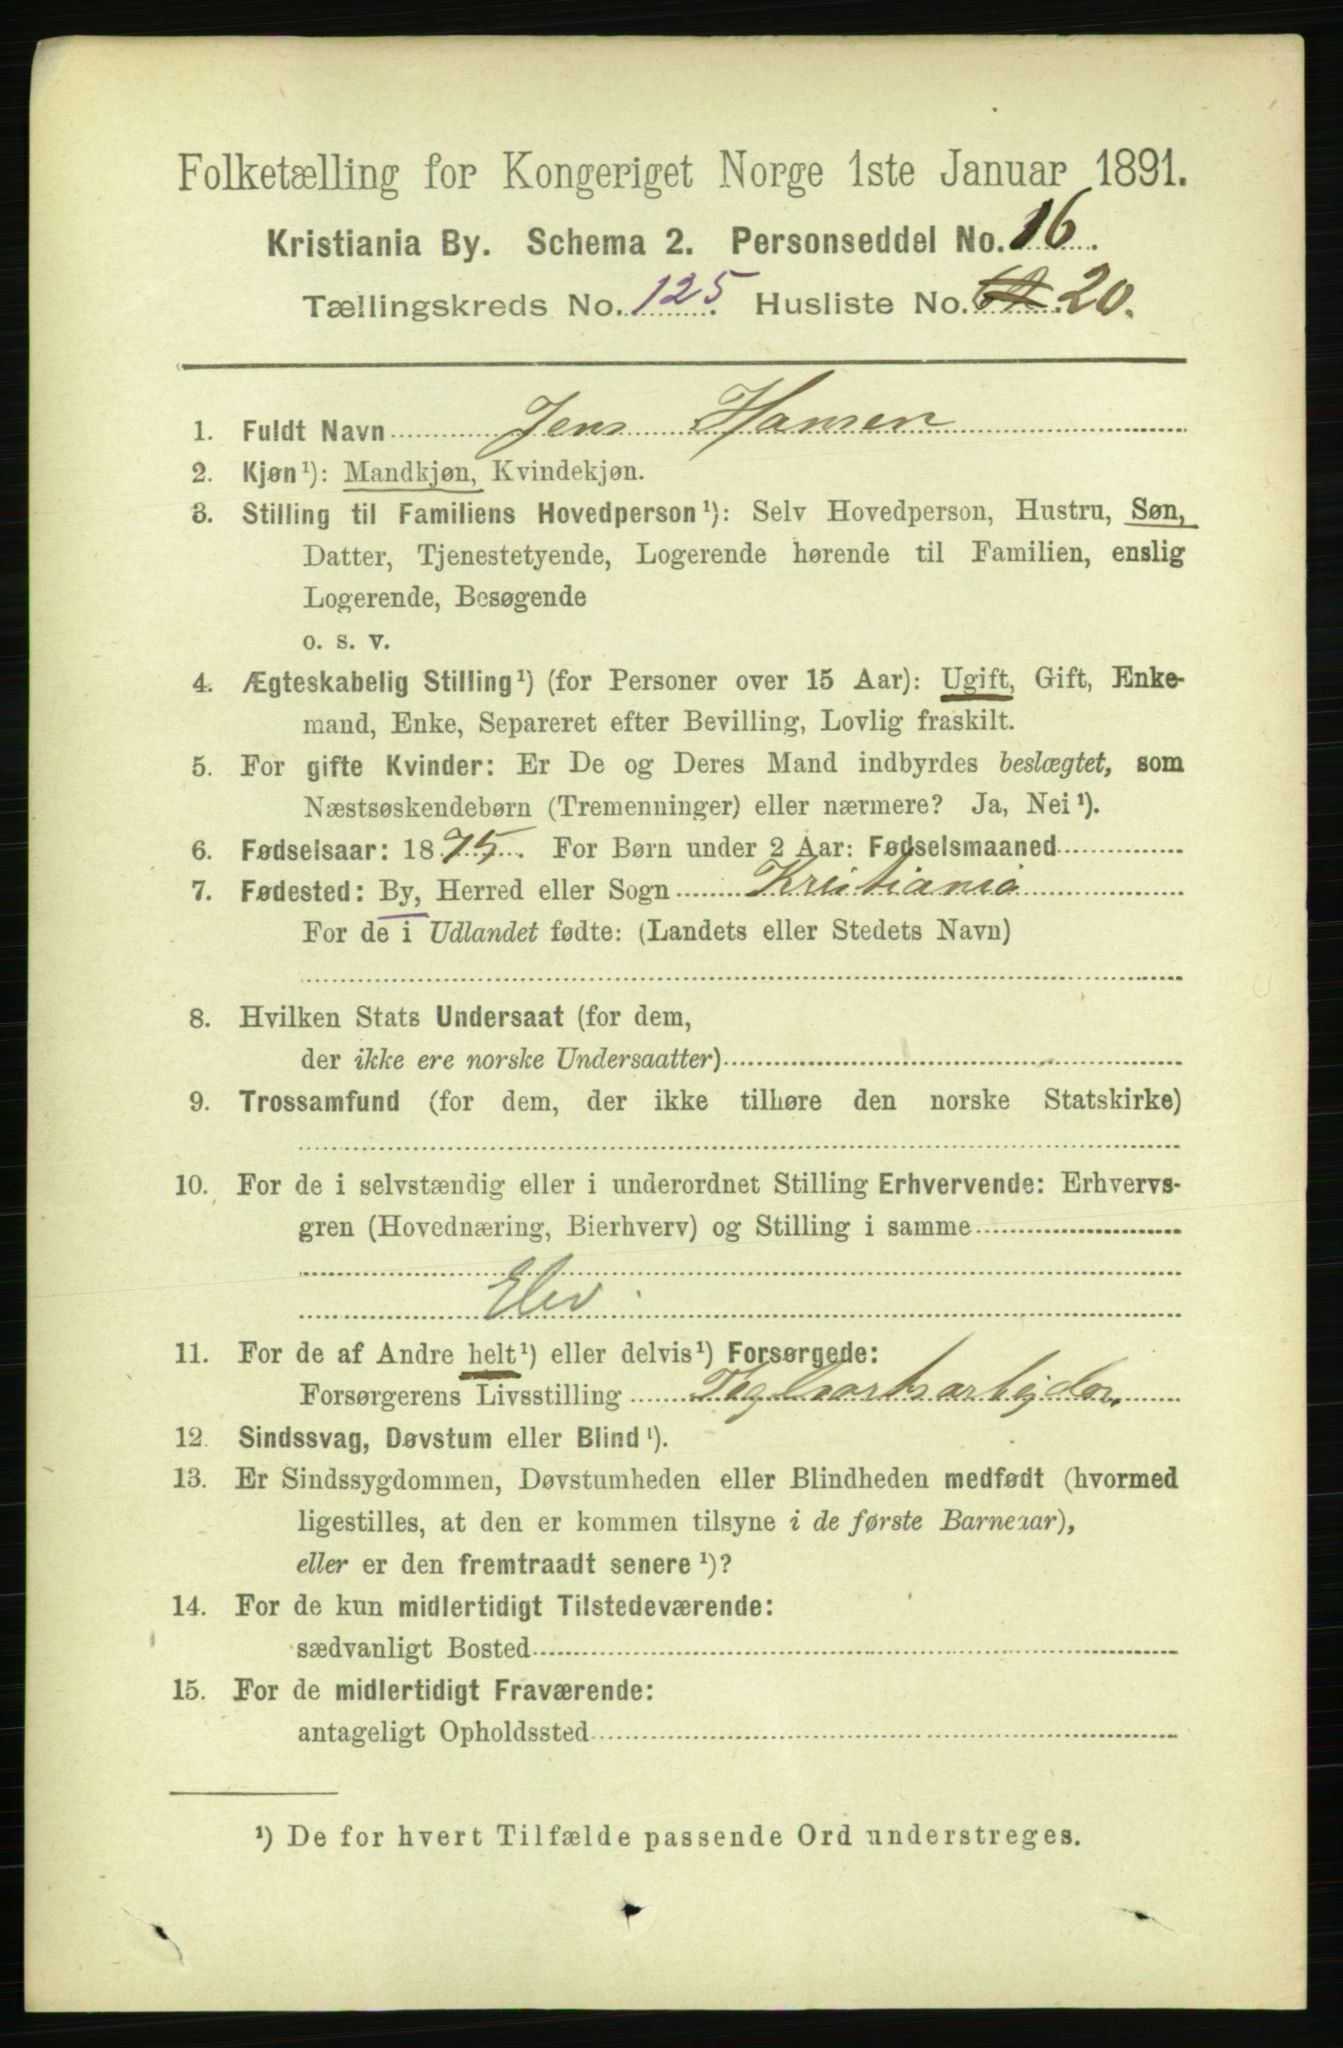 Folketælling for Kongeriget Norge 1ste Januar 1891.
Kristiania By. Schema 2. Personseddel No. 16.
Tællingskreds No. 125. Husliste No. 20.
1. Fuldt Navn Jens Hansen
2. Kjøn¹): Mandkjøn, Kvindekjøn.
3. Stilling til Familiens Hovedperson¹): Selv Hovedperson, Hustru, Søn,
Datter, Tjenestetyende, Logerende hørende til Familien, enslig
Logerende, Besøgende
o. s. v.
4. Ægteskabelig Stilling¹) (for Personer over 15 Aar): Ugift, Gift, Enke-
mand, Enke, Separeret efter Bevilling, Lovlig fraskilt.
5. For gifte Kvinder: Er De og Deres Mand indbyrdes beslægtet, som
Næstsøskendebørn (Tremenninger) eller nærmere? Ja, Nei¹).
6. Fødselsaar: 1875. For Børn under 2 Aar: Fødselsmaaned
7. Fødested: By, Herred eller Sogn Kristiania
For de i Udlandet fødte: (Landets eller Stedets Navn)
8. Hvilken Stats Undersaat (for dem,
der ikke ere norske Undersaatter)
9. Trossamfund (for dem, der ikke tilhøre den norske Statskirke)
10. For de i selvstændig eller i underordnet Stilling Erhvervende: Erhvervs-
gren (Hovednæring, Bierhverv) og Stilling i samme
Elev
11. For de af Andre helt¹) eller delvis¹) Forsørgede:
Forsørgerens Livsstilling Teglværksarbejder
12. Sindssvag, Døvstum eller Blind¹).
13. Er Sindssygdommen, Døvstumheden eller Blindheden medfødt (hvormed
ligestilles, at den er kommen tilsyne i de første Barneaar),
eller er den fremtraadt senere¹)?
14. For de kun midlertidigt Tilstedeværende:
sædvanligt Bosted
15. For de midlertidigt Fraværende:
antageligt Opholdssted
¹) De for hvert Tilfælde passende Ord understreges.